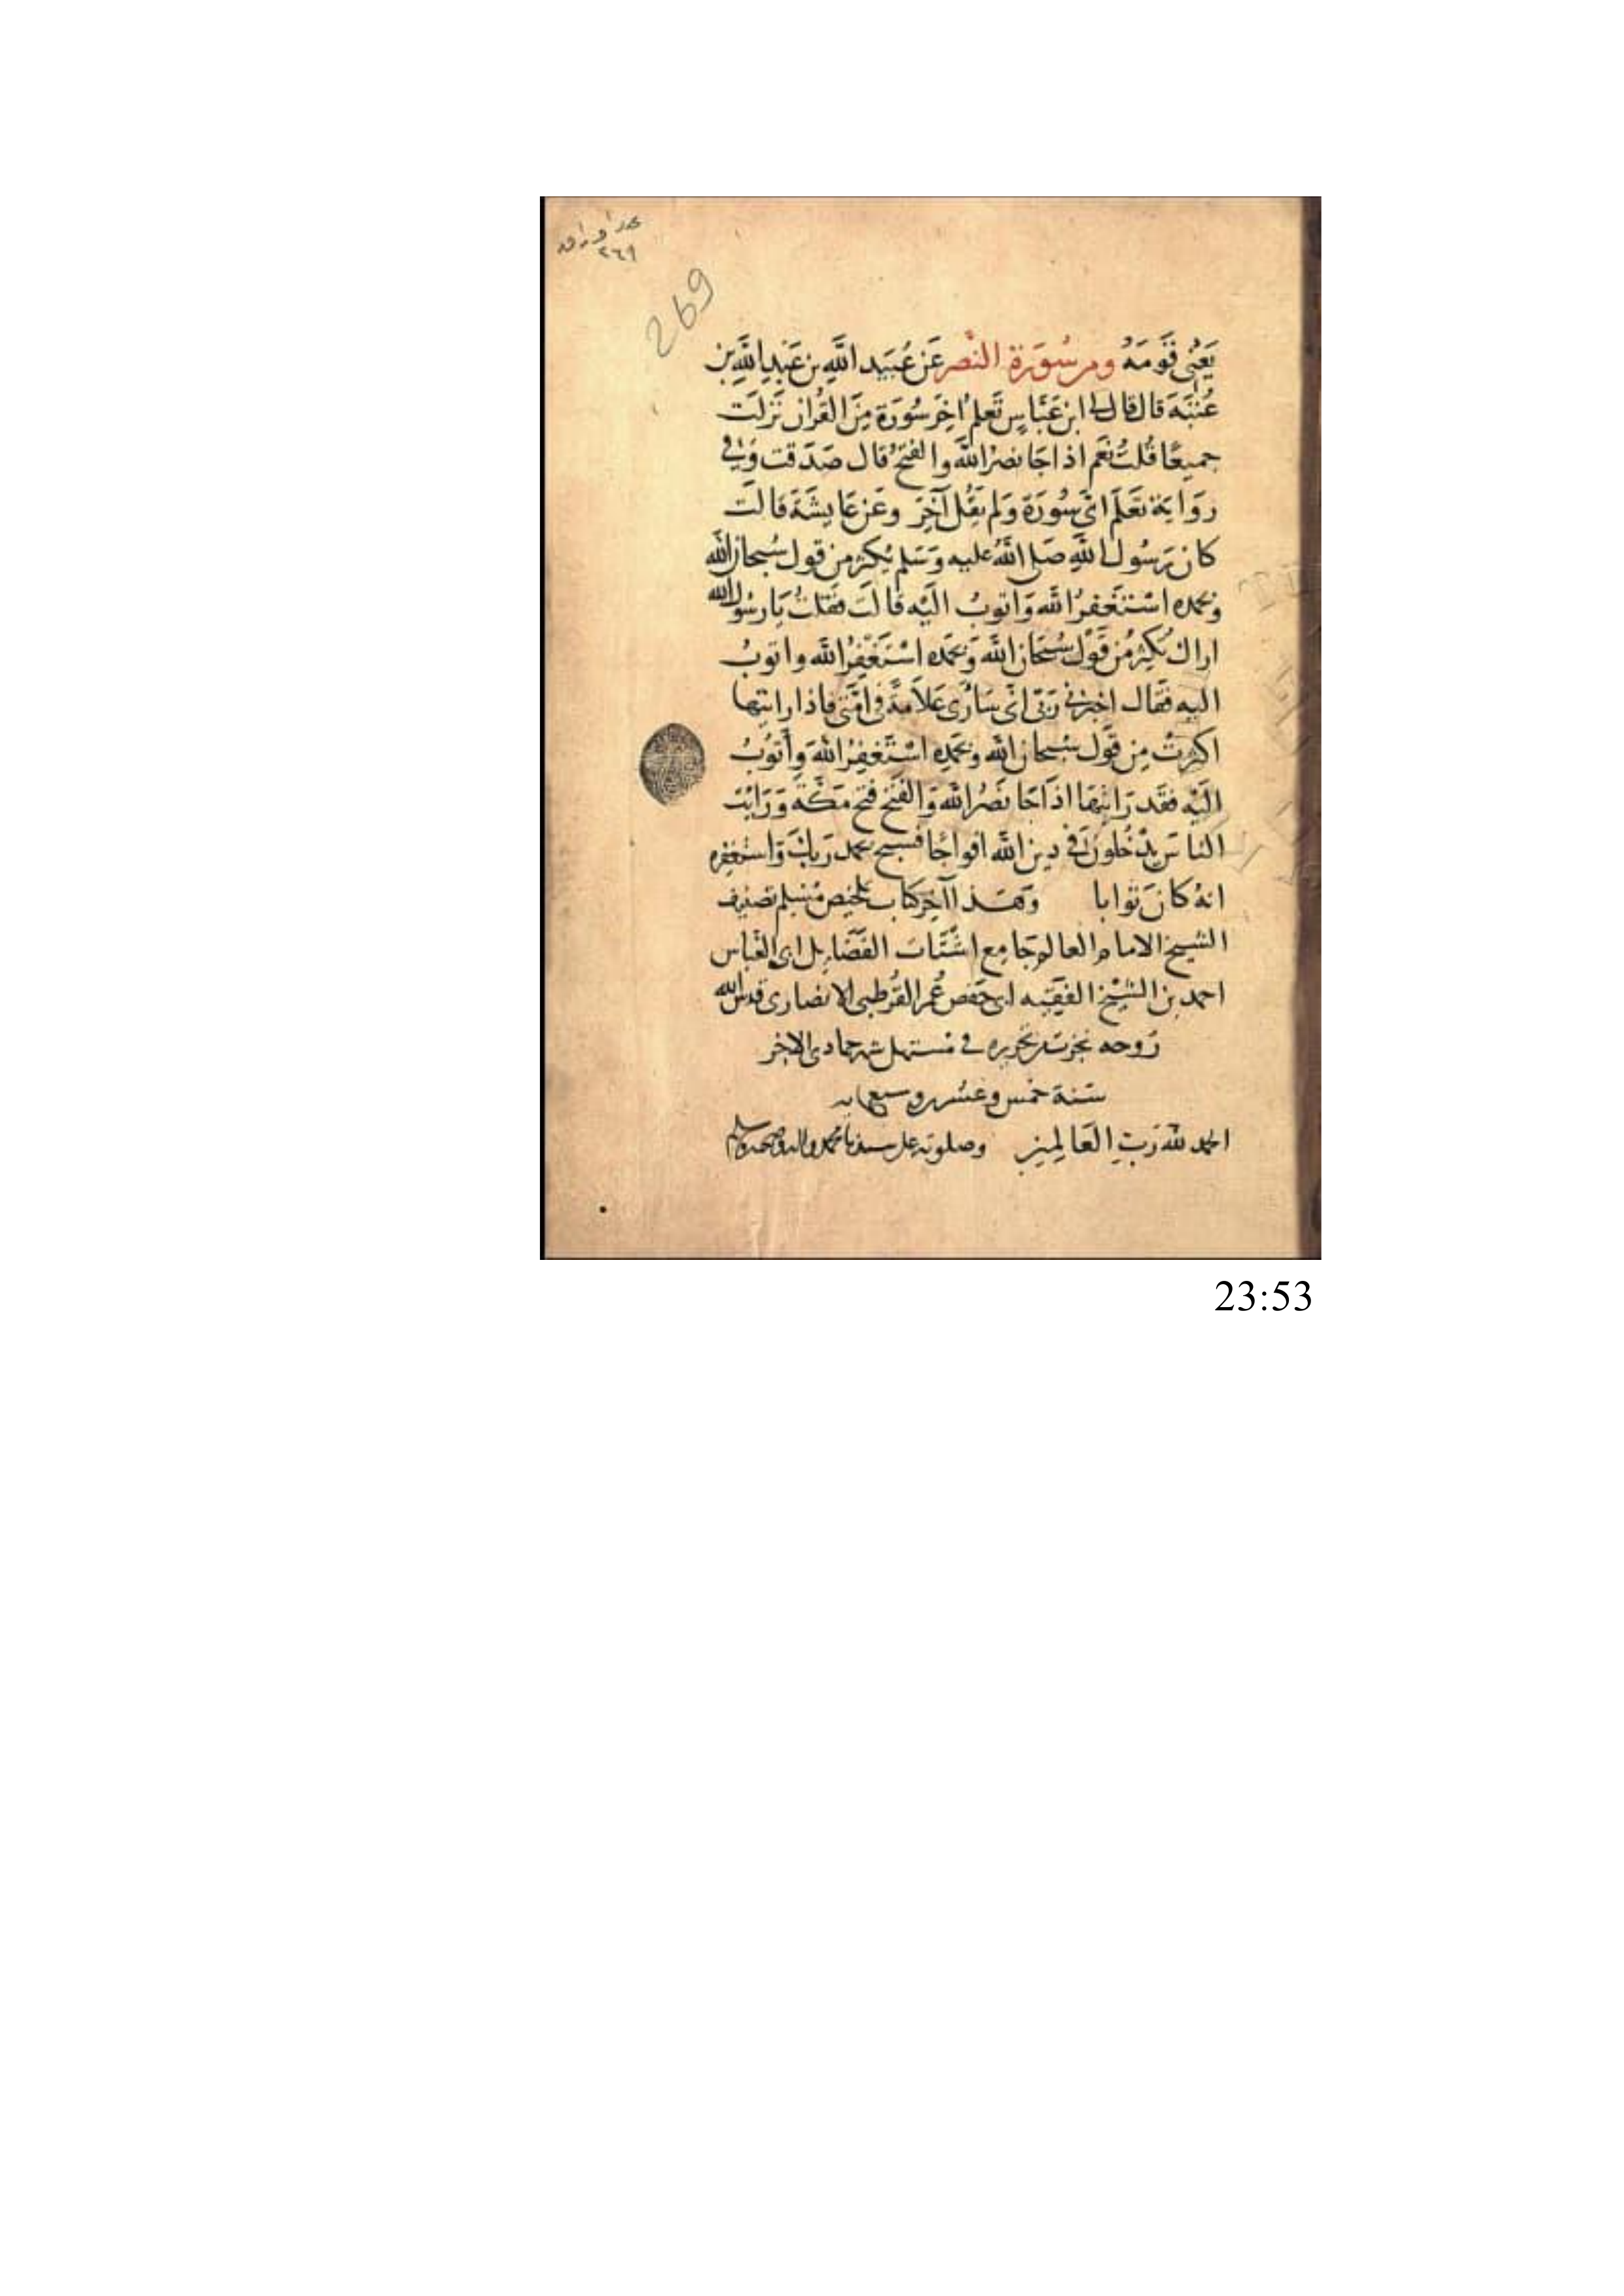 عدد اوراقه
٢٦٩
269
يَعْنى قَوْمَهُ ومن سُورَة النصر عَن عُبَيد اللَّهِ بن عَبْدِ اللَّهِ بن
عُتْبَةَ قال قال لى ابن عَبَّاسٍ تَعلم اخِرَ سُورَة مِنَ القُران نَزلَت
جميعًا قُلتُ نَعَم اذا جَا نصْرُ اللَّه والفتحُ قال صَدَقت وَفي
روَايَة تَعلَم ايّ سُورَة وَلم يَقُل آخِرَ وعَن عَايشَةَ قالت
كان رَسُول اللهِ صَلى اللهُ عليه وَسَلم يُكثر من قول سُبحان الله
وبحمده اسْتَغفِرُ الله وَاتوبُ الَيْه قالَت فقلتُ يَا رسُول الله
اراك تُكثِر مِن قَوْل سُبْحَان الله وَبحَمده اسْتَغْفِرُ الله واتوبُ
اليه فقال اخبرني رَبّى انّى سَأرَى عَلاَمَةً فى امّتى فاذا رايتها
اكثرتُ مِن قَول سُبحان الله وبحَمدِه اسْتَغفِرُ الله وَأتوُبُ
الَيْه فقَد رَايتهَا اذَا جَا نَصْرُ الله وَالفَتح فتح مَكّة وَرَايْتَ
النَاسَ يَدْخُلونَ فى دين الله افواجًا فسبح بحمد رَبكَ وَاستغفره
انهُ كانَ توابا وَهَذا آخِر كتاب تلخيص مُسْلم تصنيف
الشيخ الامام العالم جَامِع اشْتَات الفَضَايل ابى العَباس
احمد بن الشيْخ الفقيه ابى حَفص عُمر القُرطبى الانصارى قدس الله
رُوحه نجزت تحريره فى مستهل شهر جمادى الاخر
سَنة خمس وعشرين وسبعمايه
الحمد لله رَبّ العَالمين وصلوته على سيدنا محمد واله وصحبه وسلم
23:53